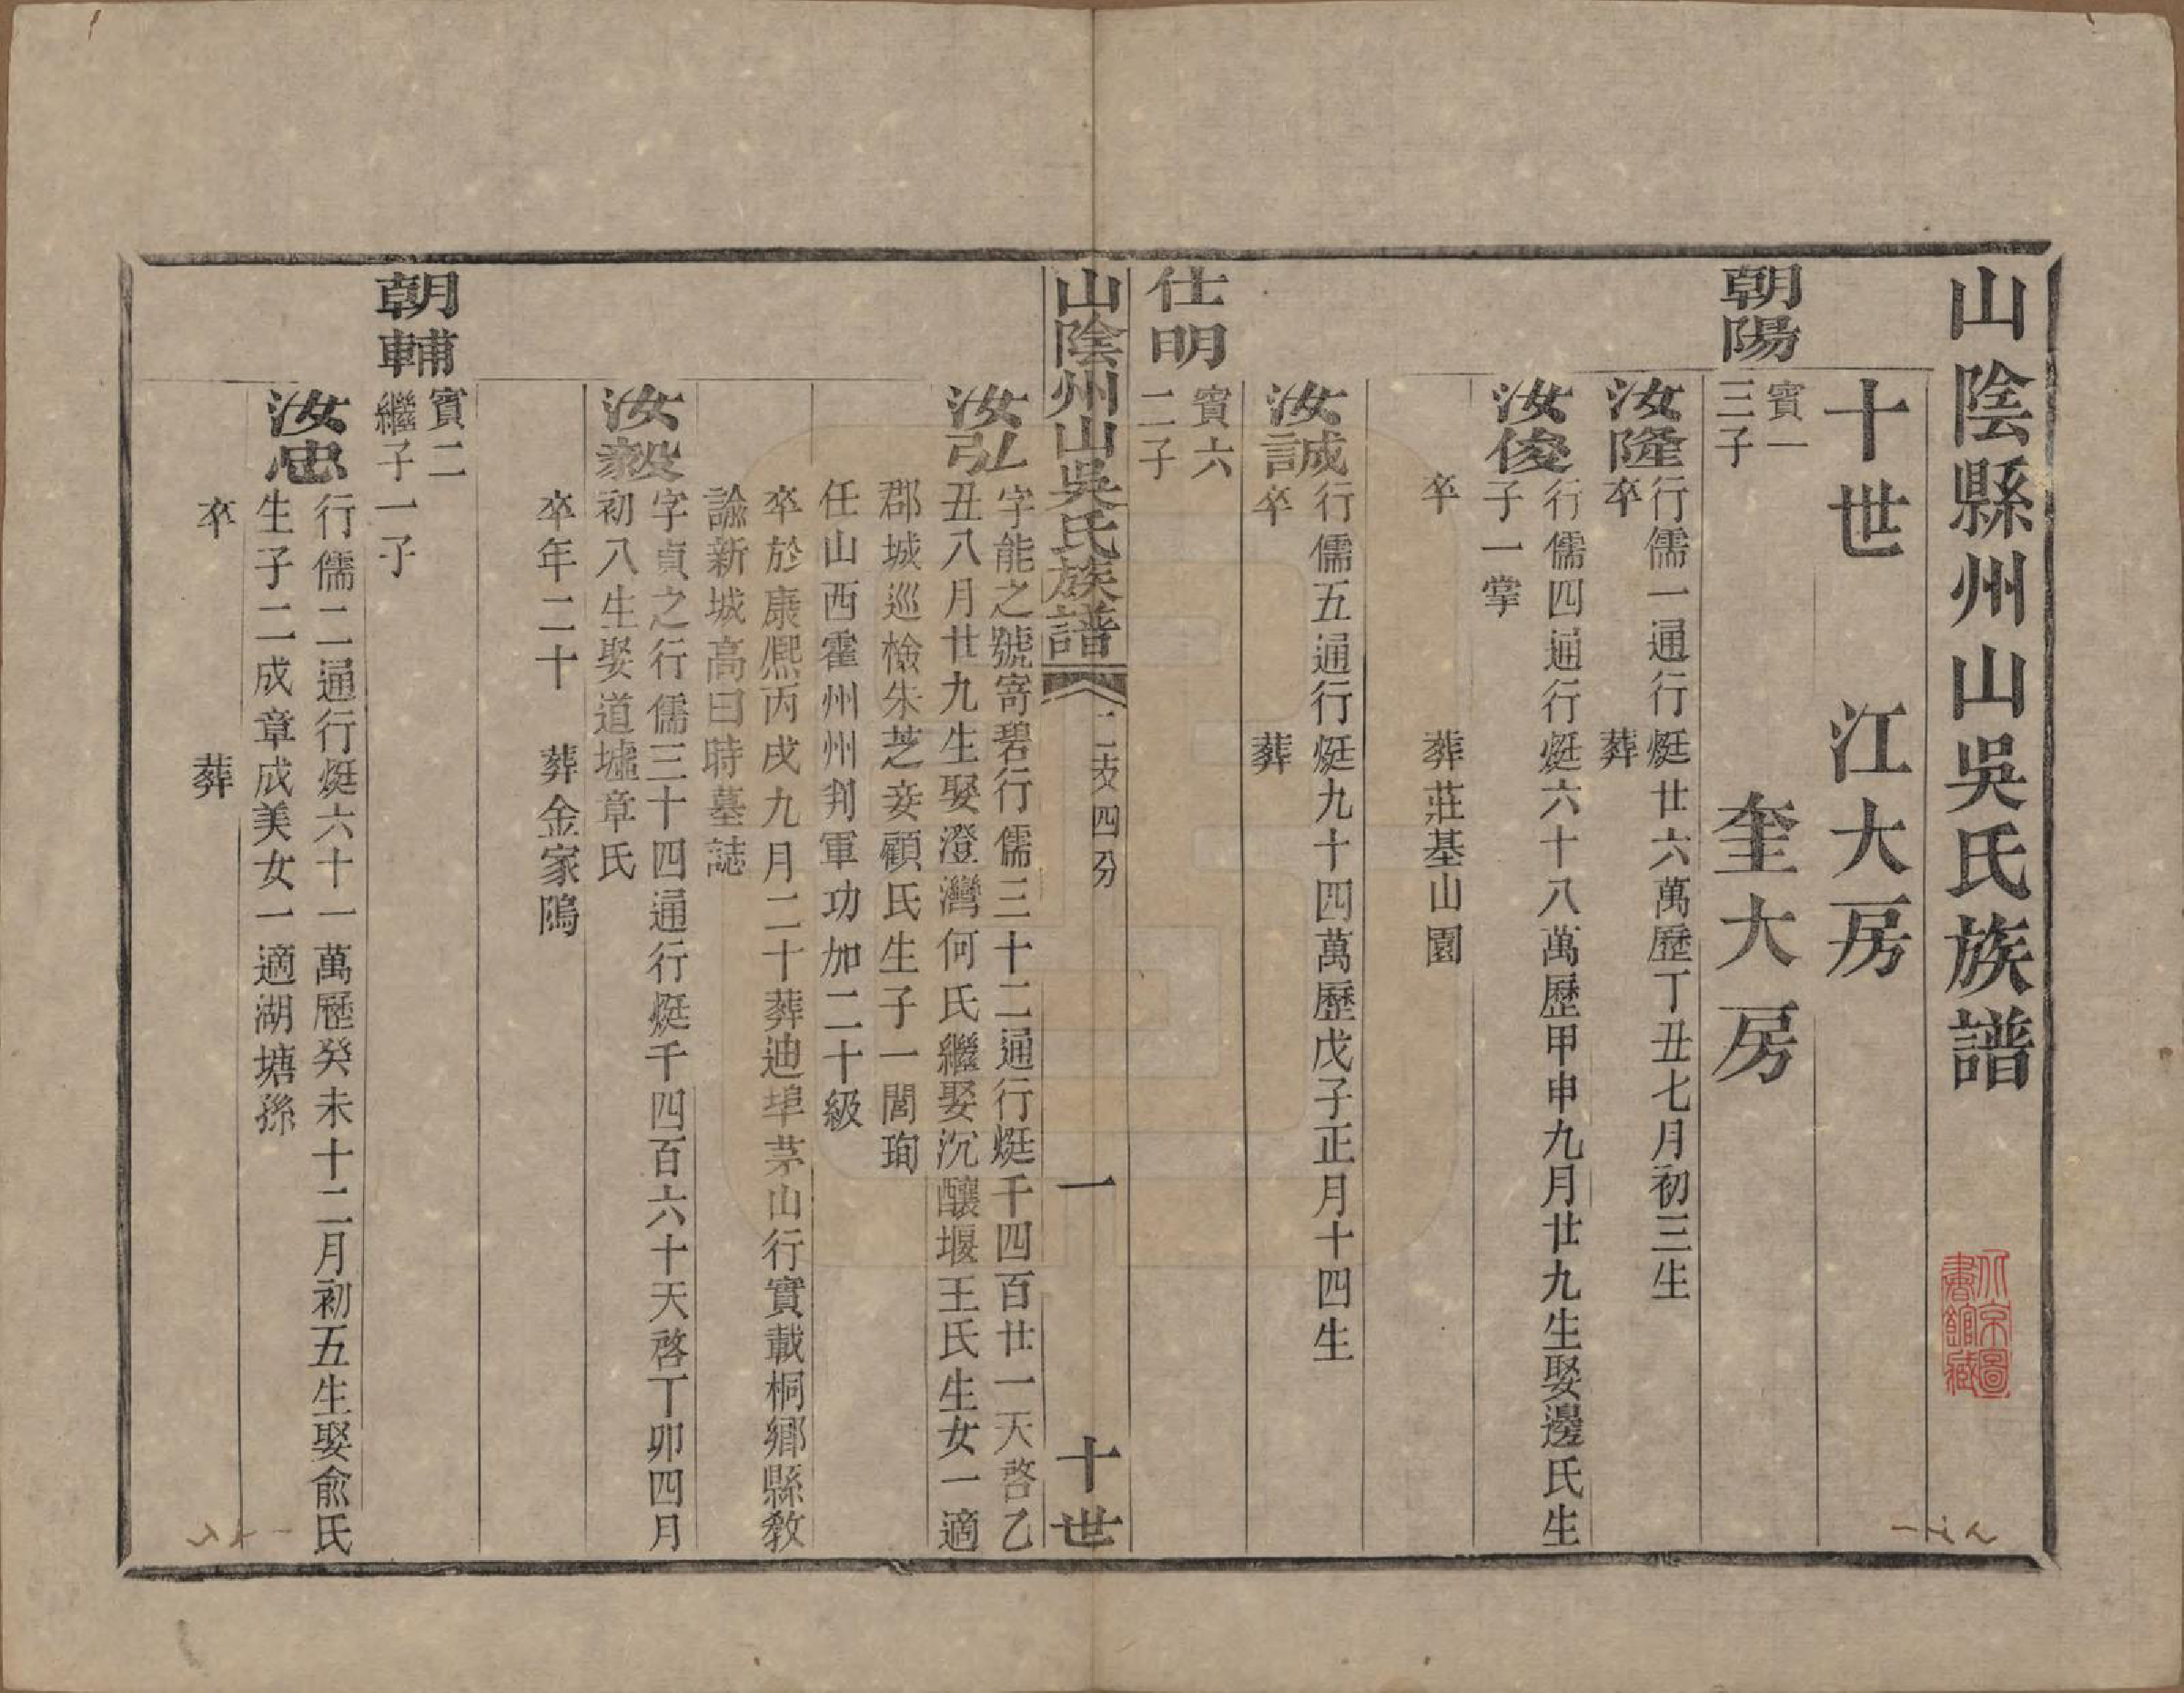 山陰縣州山吳氏族譜
十世　江大房
奎大房
朝陽
賓一
三子
汝隆
行儒一通行烶廿六萬歷丁丑七月初三生
卒　葬
汝俊
行儒四通行烶六十八萬歷甲申九月廿九生娶邊氏生
子一掌
卒　葬莊基山園
汝誠
行儒五通行烶九十四萬歷戊子正月十四生
卒　葬
仕明
賓六
二子
山陰州山吳氏族譜　二支四分　一　十世
汝弘
字能之號寄碧行儒三十二通行烶千四百廿一天啓乙
丑八月廿九生娶澄灣何氏繼娶沉釀堰王氏生女一適
郡城巡檢朱芝妾顧氏生子一閶珣
任山西霍州州判軍功加二十級
卒於康熈丙戌九月二十葬迪埠茅山行實載桐鄉縣教
諭新城高曰時墓誌
汝毅
字貞之行儒三十四通行烶千四百六十天啓丁卯四月
初八生娶道墟章氏
卒年二十　葬金家隖
朝輔
賓二
繼子一子
汝忠
行儒二通行烶六十一萬歷癸未十二月初五生娶俞氏
生子二成章成美女一適湖塘孫
卒　葬
北京圖
書館藏